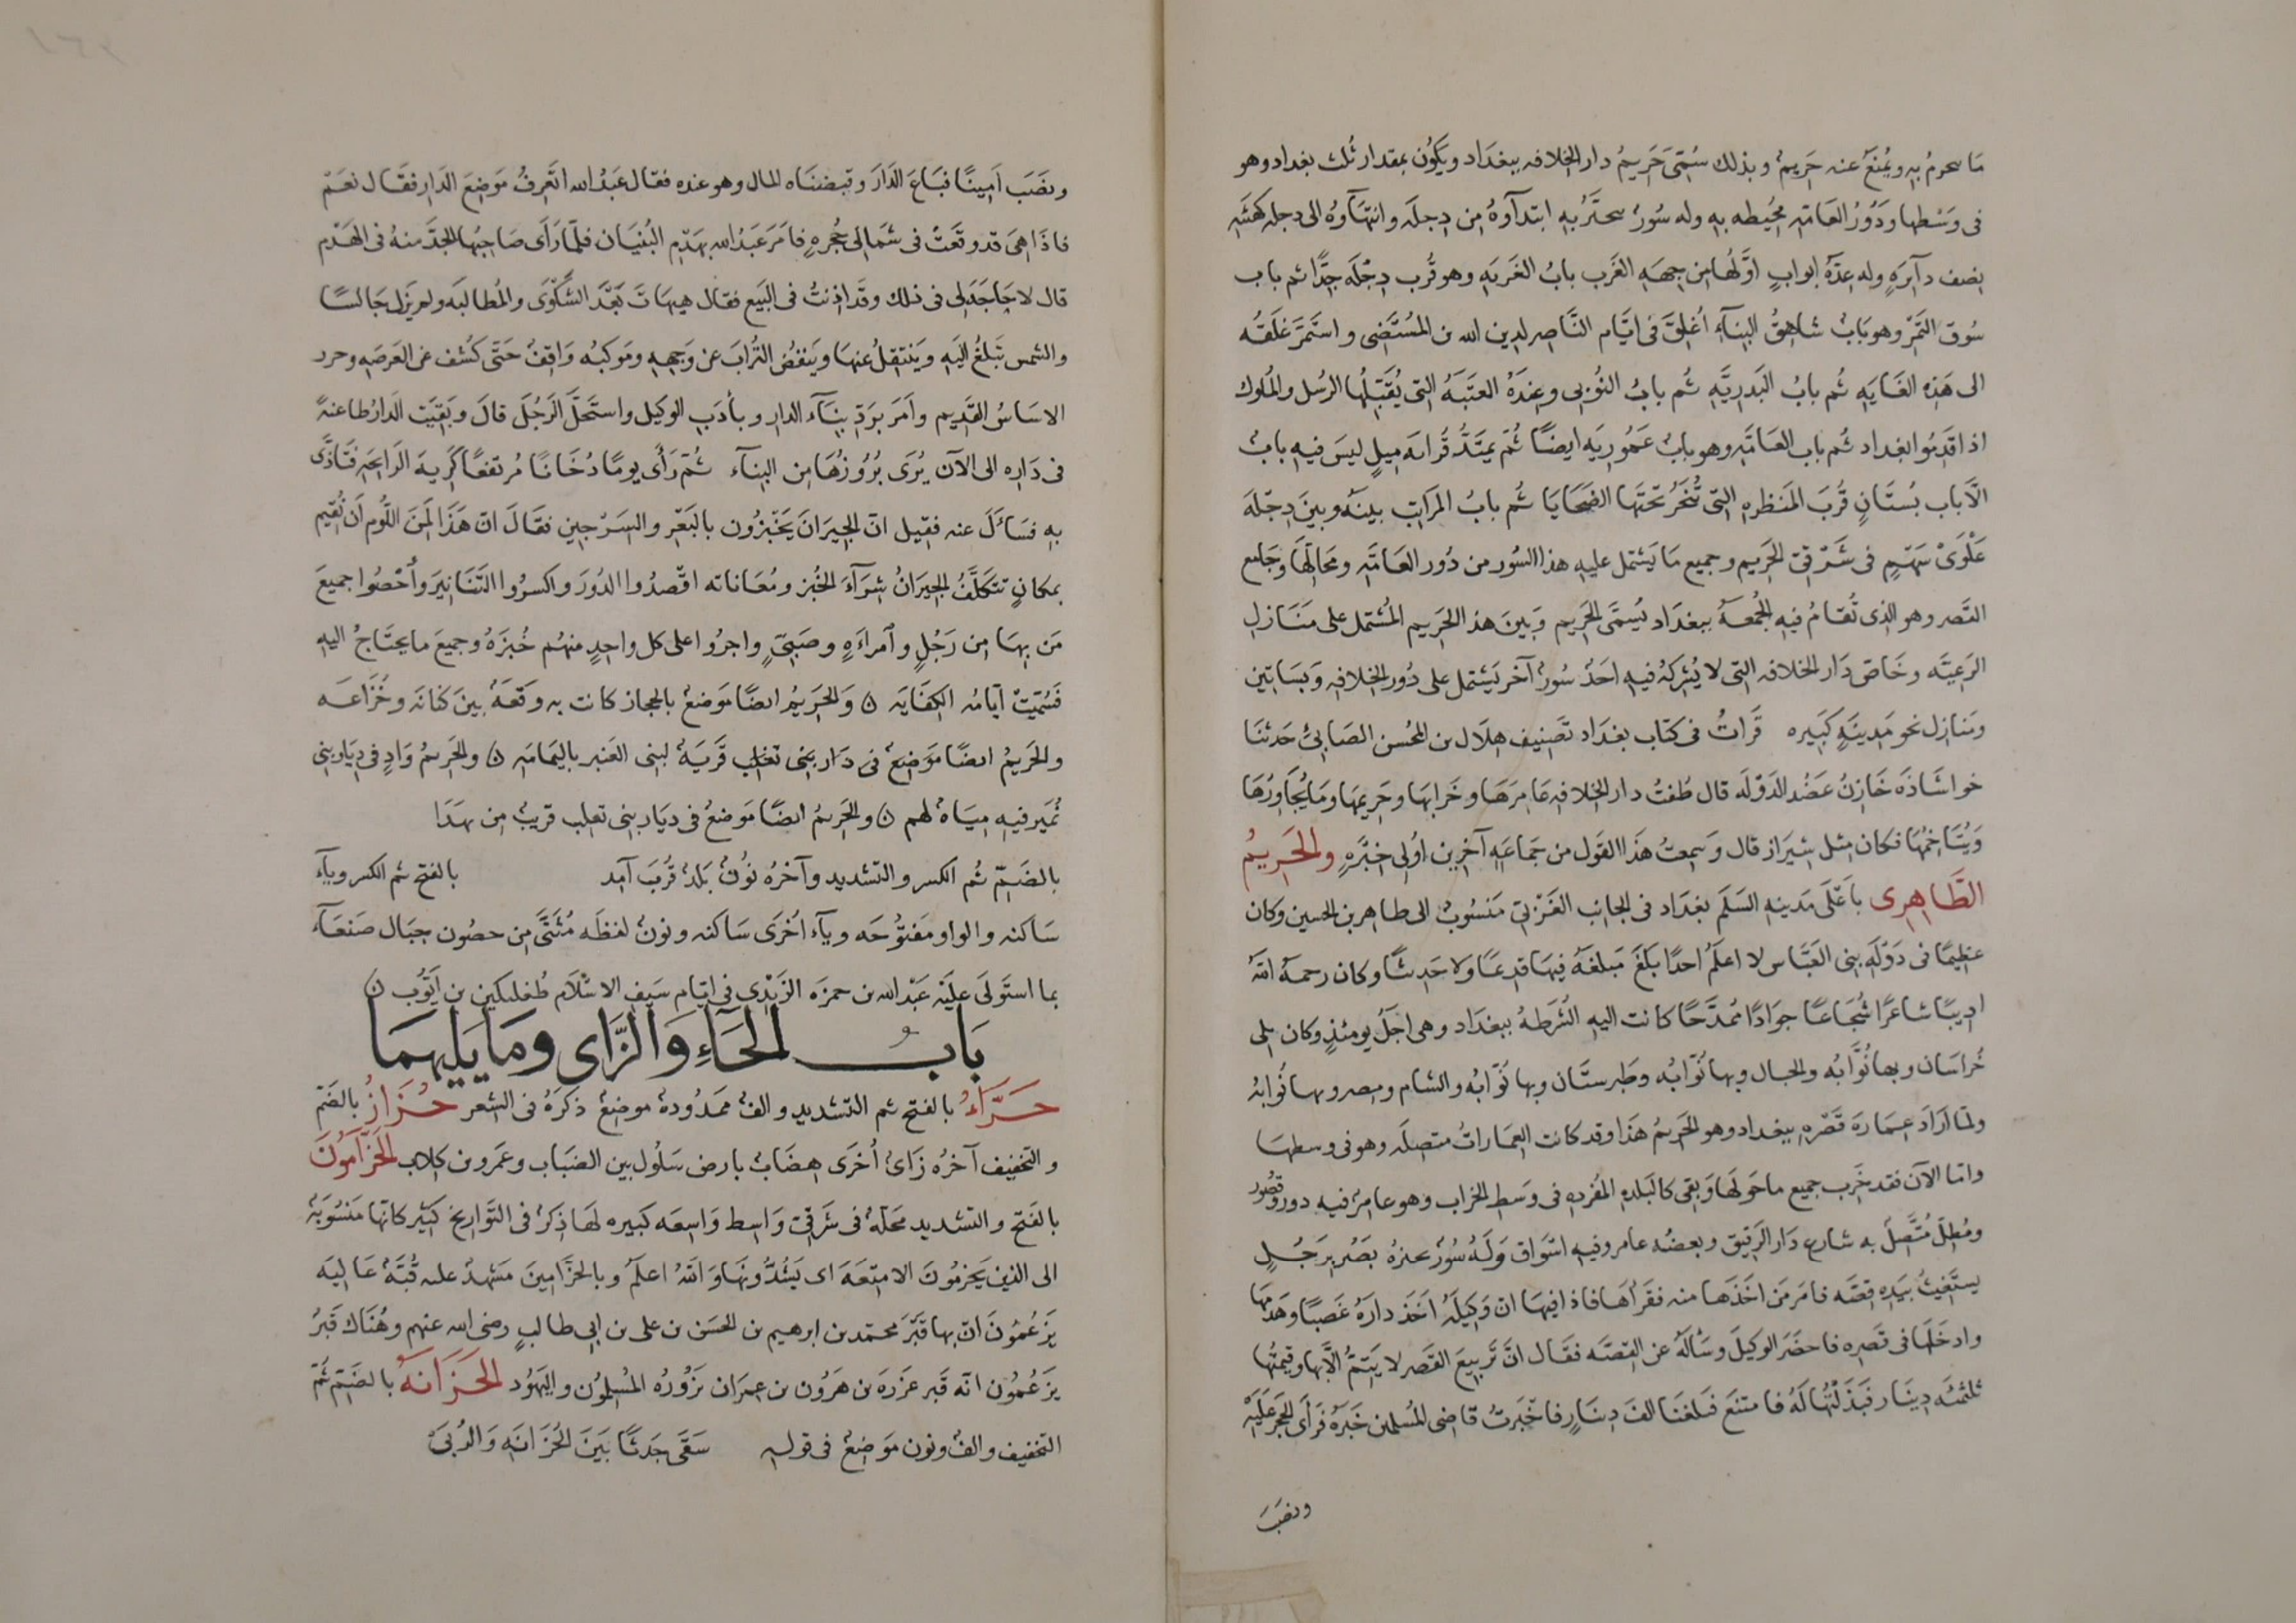 ما يحرم به ويمنع عنه حريم وبذلك سمى حريم دار الخلافه ببغداد ويكون بمقدار ثلث بغداد وهو
فى وسطها ودور العامه محيطه به وله سور يتحيز به ابتداؤه من دجله وانتهاؤه الى دجله كهئه
نصف دايره وله عده ابواب اولها من جهه الغرب باب الغربه وهو قرب دجله جدا ثم باب
سوق التمر وهو باب شاهق البناء اغلق فى ايام الناصر لدين الله بن المستضى واستمر غلقه
الى هذه الغايه ثم باب البدريه ثم باب النوبى وعنده العتبه التى يقبلها الرسل والملوك
اذا قدموا بغداد ثم باب العامه وهو باب عموريه ايضا ثم يمتد قرابه ميل ليس فيه باب
الا باب بستان قرب المنظره التى تنحر تحتها الضحايا ثم باب المراتب بينه وبين دجله
غلوى سهم فى شرقى الحريم وجميع ما يشتمل عليه هذا السور من دور العامه ومحالها وجامع
القصر وهو الذى تقام فيه الجمعه ببغداد يسمى الحريم وبين هذا الحريم المشتمل على منازل
الرعيه وخاص دار الخلافه التى لا يشركه فيه احد سور آخر يشتمل على دور الخلافه وبساتين
ومنازل نحو مدينه كبيره قرات فى كتاب بغداد تصنيف هلال بن المحسن الصابئ حدثنا
خواشاذه خازن عضد الدوله قال طفت دار الخلافه عامرها وخرابها وحريمها وما يجاورها
ويتاخمها فكان مثل شيراز قال وسمعت هذا القول من جماعه آخرين اولى خبره والحريم
الطاهرى باعلى مدينه السلم بغداد فى الجانب الغربى منسوب الى طاهر بن الحسين وكان
عظيما فى دوله بنى العباس لا اعلم احدا بلغ مبلغه فيها قديما ولا حديثا وكان رحمه الله
اديبا شاعرا شجاعا جوادا ممدحا كانت اليه الشرطه ببغداد وهى اجل يومئذ وكان يلى
خراسان وبها نوابه والجبال وبها نوابه وطبرستان وبها نوابه والشام ومصر وبها نوابه
ولما اراد عماره قصره ببغداد وهو الحريم هذا وقد كانت العمارات متصله وهو فى وسطها
واما الآن فقد خرب جميع ما حولها وبقى كالبلده المفرده فى وسط الخراب وهو عامر فيه دور وقصور
ومطل متصل به شارع دار الرقيق وبعضه عامر وفيه اسواق وله سور بصر برجل
يستغيث بيده قصه فامر من اخذها منه فقراها فاذا فيها ان وكيله اخذ داره غصبا وهدمها
وادخلها فى قصره فاحضر الوكيل وساله عن القصه فقال ان تربيع القصر لا يتم الا بها وقيمتها
ثلثمئه دينار فبذلتها له فامتنع فبلغنا الف دينار فاخبرت قاضى المسلمين خبره فراى الحجر عليه
ونصب
ونصب امينا فباع الدار وقبضناه المال وهو عنده فقال عبد الله اتعرف موضع الدار فقال نعم
فاذا هى قد وقعت فى شمالى حجره فامر عبد الله بهدم البنيان فلما راى صاحبها الجد منه فى الهدم
قال لا حاجه لى فى ذلك وقد اذنت فى البيع فقال هيهات بعد الشكوى والمطالبه ولم يزل جالسا
والشمس تبلغ اليه وينتقل عنها وينفض التراب عن وجهه وموكبه واقف حتى كشف عن العرصه وحرد
الاساس القديم وامر برد بناء الدار وبأدب الوكيل واستحل الرجل قال وبقيت الدار طاعنه
فى داره الى الآن يرى بروزها من البناء ثم رأى يوما دخانا مرتفعا كريه الرايحه فتاذى
به فسأل عنه فقيل ان الجيران يخبزون بالبعر والسرجين فقال ان هذا لمن اللوم ان نقيم
بمكان تتكلف الجيران شراء الخبز ومعاناته اقصدوا الدور واكسروا التنانير وأحصوا جميع
من بها من رجل وامراءه وصبى واجروا على كل واحد منهم خبزه وجميع ما يحتاج اليه
فسميت ايامه الكفايه ن والحريم ايضا موضع بالحجاز كانت به وقعه بين كنانه وخزاعه
والحريم ايضا موضع فى دار بنى تغلب قريه لبنى العنبر باليمامه ن والحريم واد فى ديار بنى
نمير فيه مياه لهم ن والحريم ايضا موضع فى ديار بنى تعلب قريب من بهدا
بالضم ثم الكسر والتشديد وآخره نون بلد قرب آمد بالفتح ثم الكسر وياء
ساكنه والواو مفتوحه وياء اخرى ساكنه ونون لفظه مثنى من حصون جبال صنعاء
بما استولى عليه عبد الله بن حمزه الزيدى فى ايام سيف الاسلام طغلبكين بن ايوب ن
باب الحاء والزاى وما يليهما
حزاء بالفتح ثم التشديد والف ممدوده موضع ذكره فى الشعر حزاز بالضم
والتخفيف آخره زاى أخرى هضاب بارض سلول بين الضباب وعمرو بن كلاب الحزامون
بالفتح والتشديد محله فى شرقى واسط واسعه كبيره لها ذكر فى التواريخ كبير كانها منسوبه
الى الذين يحزمون الامتعه اى يشدونها والله اعلم وبالحزامين مشهد عليه قبه عاليه
يزعمون ان بها قبر محمد بن ابرهيم بن الحسن بن على بن ابى طالب رضى الله عنهم وهناك قبر
يزعمون انه قبر عزره بن هرون بن عمران يزوره المسلمون واليهود الحزانه بالضم ثم
التخفيف والف ونون موضع فى قوله سقى جدثا بين الحزانه والربى